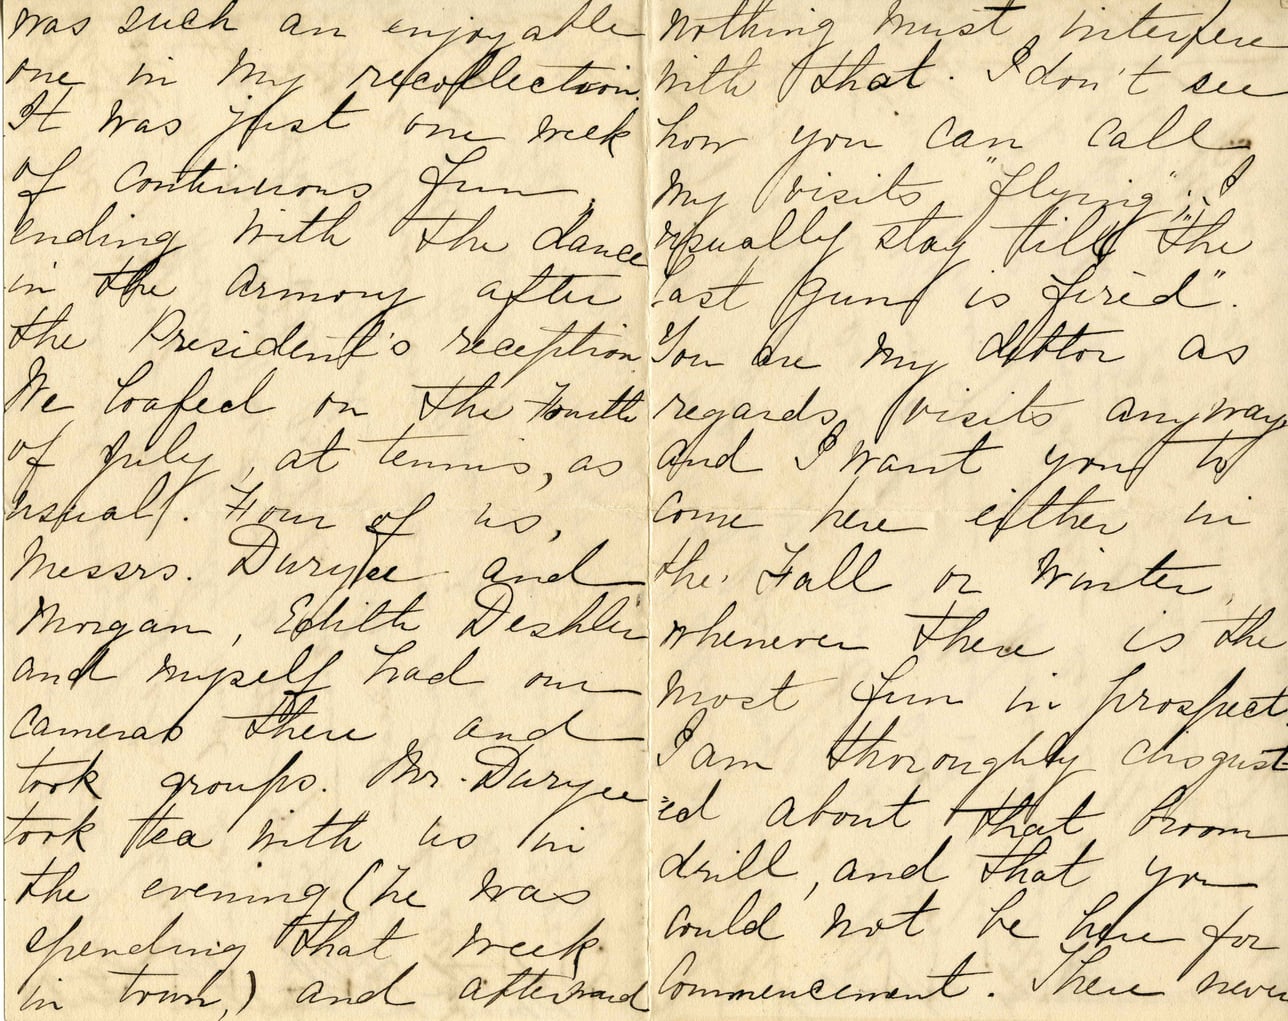 was such an enjoyable
one in my recollection.
It was just one week
of continuous fun,
ending with the dance
in the armory after
the President's reception.
We loafed on the Fourth
of July, at tennis, as
usual. Four of us,
Messrs. Duryee and
Morgan, Edith Deshler
and myself had our
cameras there and
took groups. Mr. Duryee
took tea with us in
the evening (he was
spending that week
in town,) and afterward
nothing must interfere
with that. I don't see
how you can call
my visits "flying"; I
usually stay till "the
last gun is fired".
You are my debtor as
regards visits anyway
and I want you to
come here either in
the Fall or Winter,
whenever there is the
most fun in prospect.
I am thoroughly disgust
=ed about that broom
drill, and that you
could not be here for
Commencement. There never